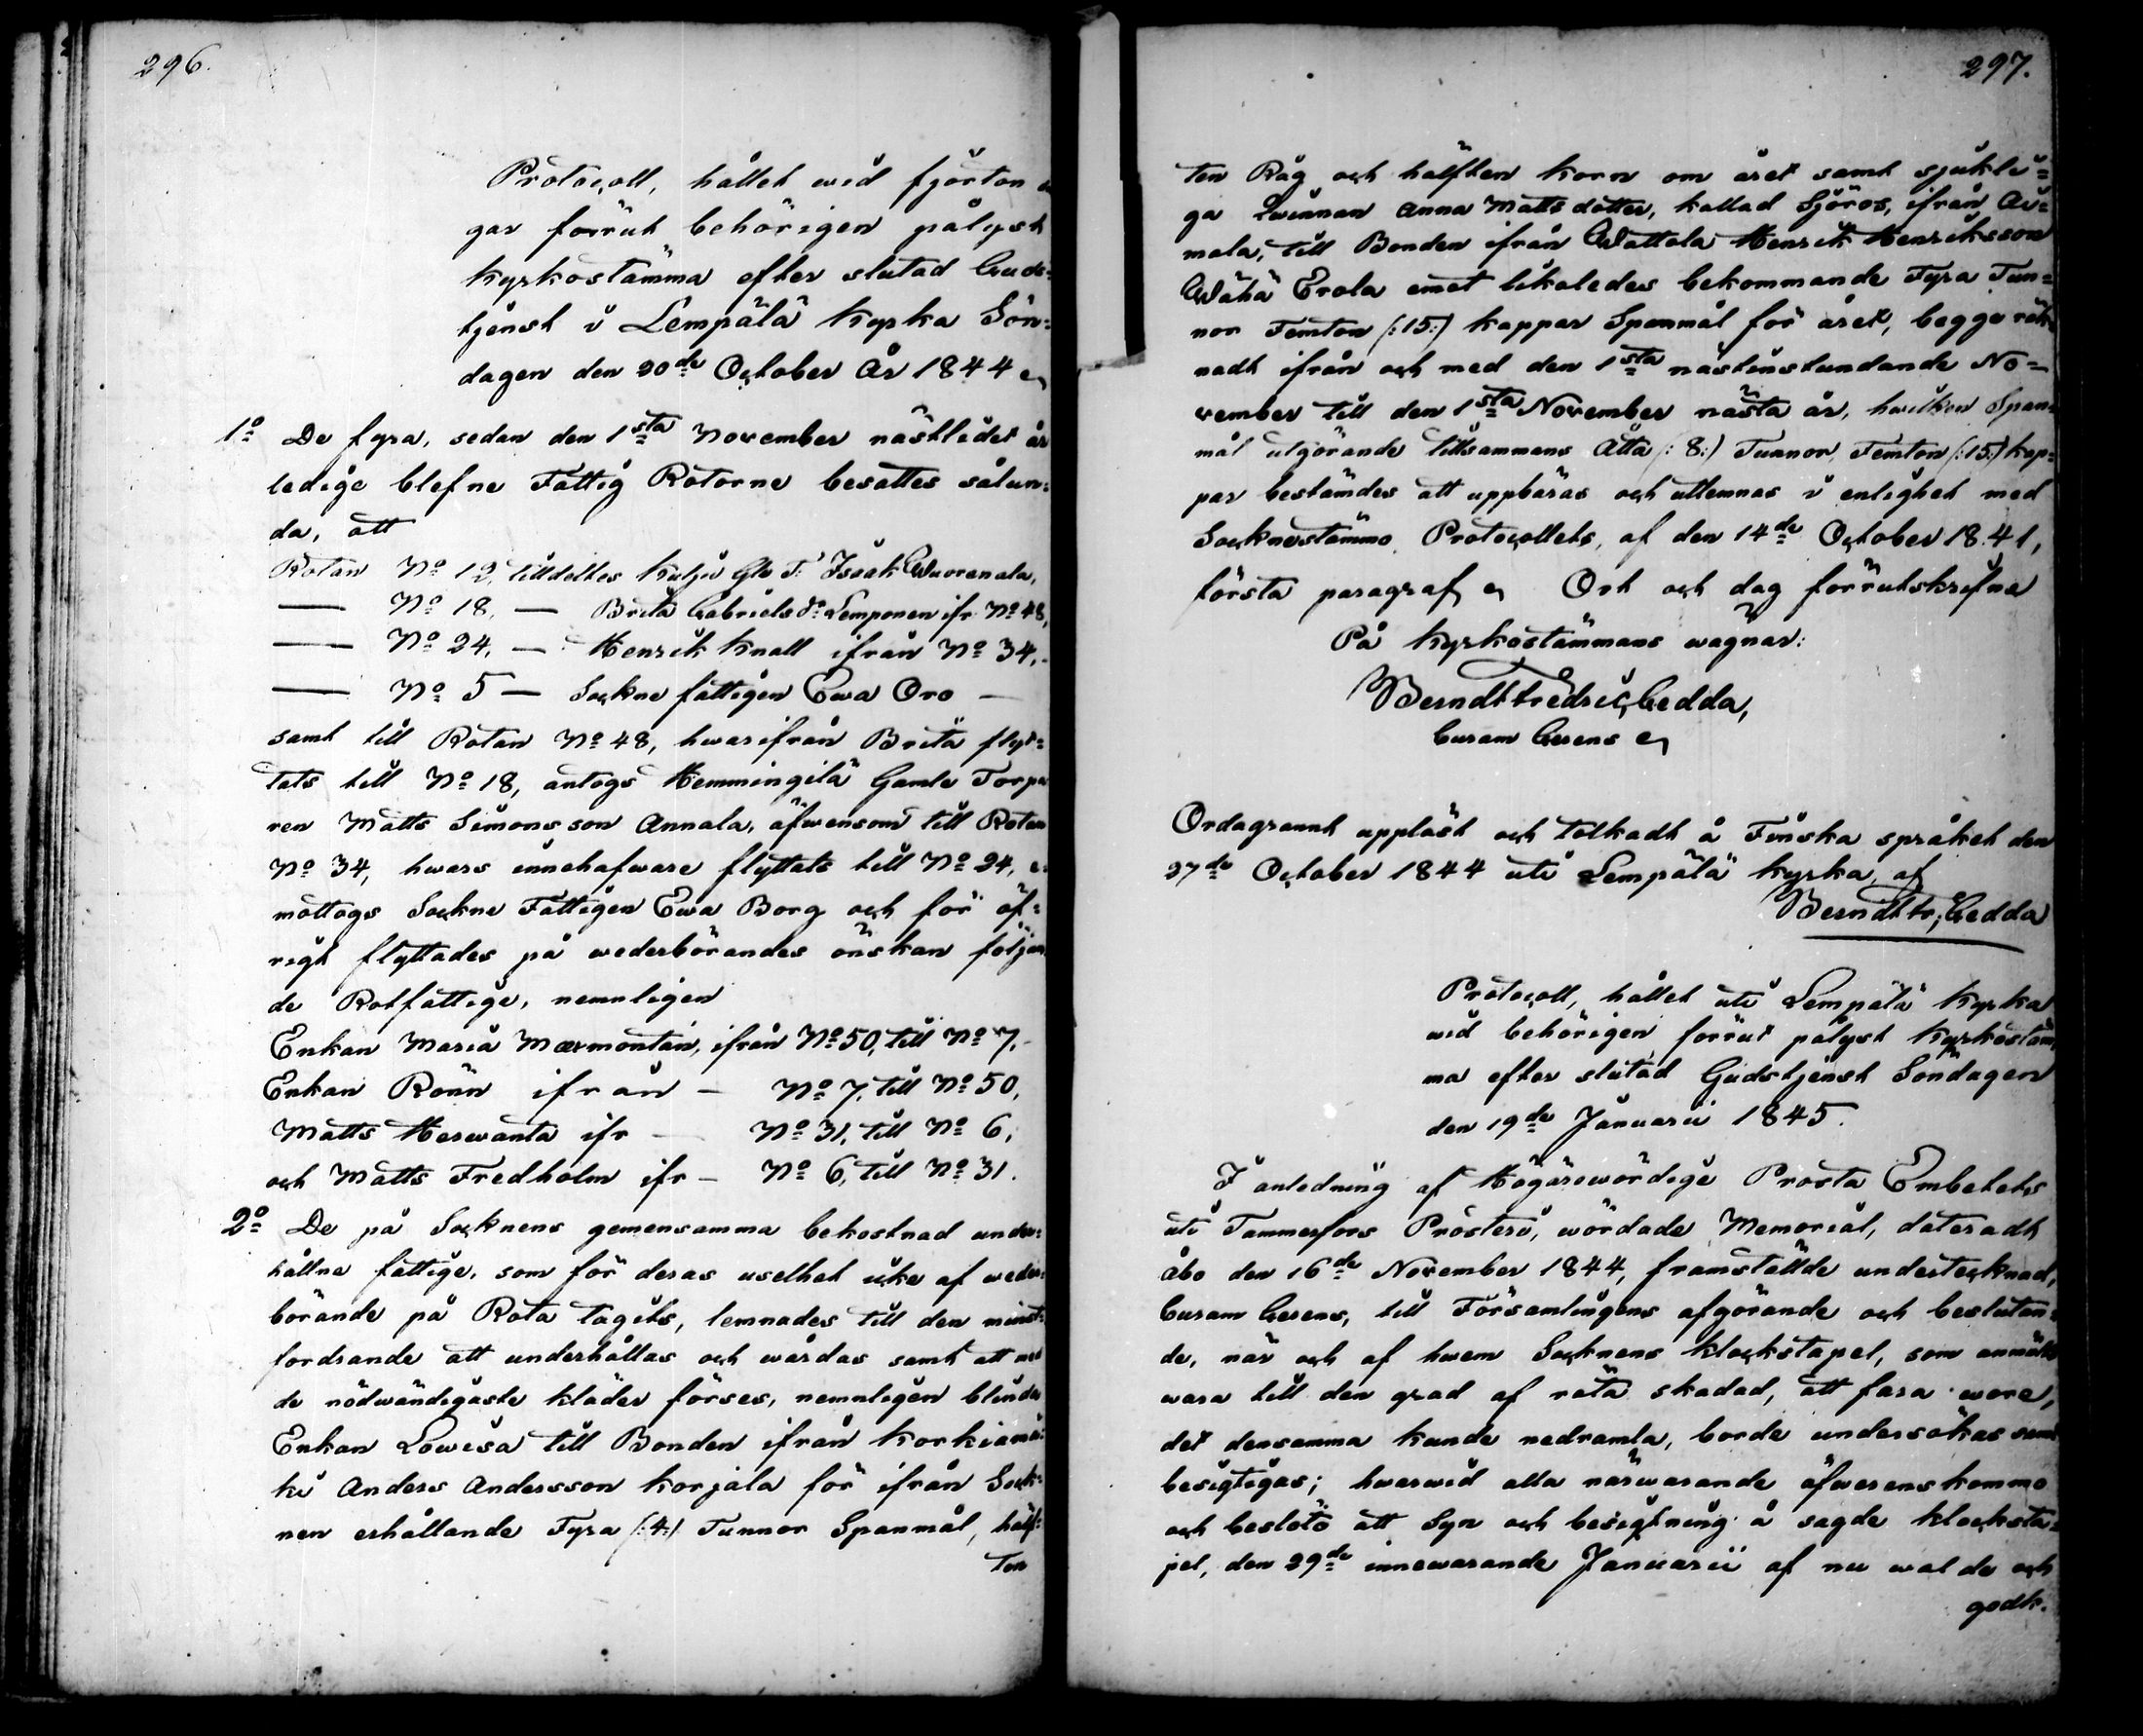 296.
Protocoll, hållet wid fjorton
gar förrut behörigen pålyst
Kyrkostämma efter slutad Guds-
tjenst i Lempälä Kyrka Sön-
dagen den 20de October År 1844
1o De fyra, sedan den 1sta November nästledet år
ledige blefne Fattig Rotorne besattes sålun-
da, att
Rotan No 12, tilldeltes Isaak Wuorenala,
— No 18, — Brita Gabriels dr Lemponen ifr No 48,
— No 24, — Henrik Knall ifrån No 34,
— No 5 — Sockne fattigen Ewa Oro —
samt till Rotan No 48, hwarifrån Brita flyt-
tats till No 18, antogs Hemmingilä Gamle Torpa
ren Matts Simonsson Annala, äfwensom till Rotan
No 34, hwars innehafware flyttats till No 24, e-
mottogs Sockne Fattigen Ewa Borg och för öf-
rigt flyttades på wederbörandes önskan följan
de Rotfattige, nemnligen
Enkan Maria Marmontan, ifrån No 50, till No 7,
Enkan Rönn ifrån — No 7, till No 50,
Matts Herwanta ifr — No 31, till No 6,
och Matts Fredholm ifr — No 6, till No 31.
2o De på Socknens gemensamma bekostnad under-
hållne fattige, som för deras uselhet icke af weder-
börande på Rota tagits, lemnades till den minst-
fordrande att underhållas och wårdas samt att med
de nödwändigaste kläder förses, nemnligen blinda
Enkan Lowisa till Bonden ifrån Korkiamä-
ki Anders Andersson Korjala för ifrån Sock-
nen erhållande Fyra (:4:) Tunnor Spanmål, hälf-
ten
297.
ten Råg och hälften Korn om året samt sjukli-
ga Qwinnan Anna Matts dotter, kallad Sjöros, ifrån Au-
mala, till Bonden ifrån Wattala Henrik Henriksson
Wähä Erola emot likaledes bekommande Fyra Tun-
nor Femton (:15:) kappar Spanmål för året, begge räk-
nadt ifrån och med den 1sta nästinstundande No-
vember till den 1sta November nästa år, hwilken Span-
mål utgörande tillsammans Åtta (:8:) Tunnor, Femton (:15:) kap-
par bestämdes att uppbäras och utlemnas i enlighet med
Socknestämmo Protocollets, af den 14de October 1841,
första paragraf. Ort och dag förrutskrifne
På Kyrkostämmans wägnar:
Berndt Fredric Gedda,
Curam Gerens
Ordagrannt uppläst och tolkadt å Finska språket den
27de October 1844 uti Lempälä Kyrka, af
Berndt Fr. Gedda
Protocoll, hållet uti Lempälä Kyrka
wid behörigen förrut pålyst Kyrkostäm
ma efter slutad Gudstjenst Söndagen
den 19de Januarii 1845.
I anledning af Högärewördige Prosta Embetets
uti Tammerfors Prosteri, wördade Memorial, dateradt
Åbo den 16de November 1844, framställde undertecknad,
Curam Gerens, till Församlingens afgörande och beslutan-
de, när och af hwem Socknens klockstapel, som anmälts
wara till den grad af röta skadad, att fara wore,
det densamma kunde nedramla, borde undersökas samt
besigtigas; hwarwid alla närwarande öfwerenskommo
och beslöto att Syn och besigtning å sagde klocksta-
pel, den 29de innewarande Januarii af nu walde och
godk.